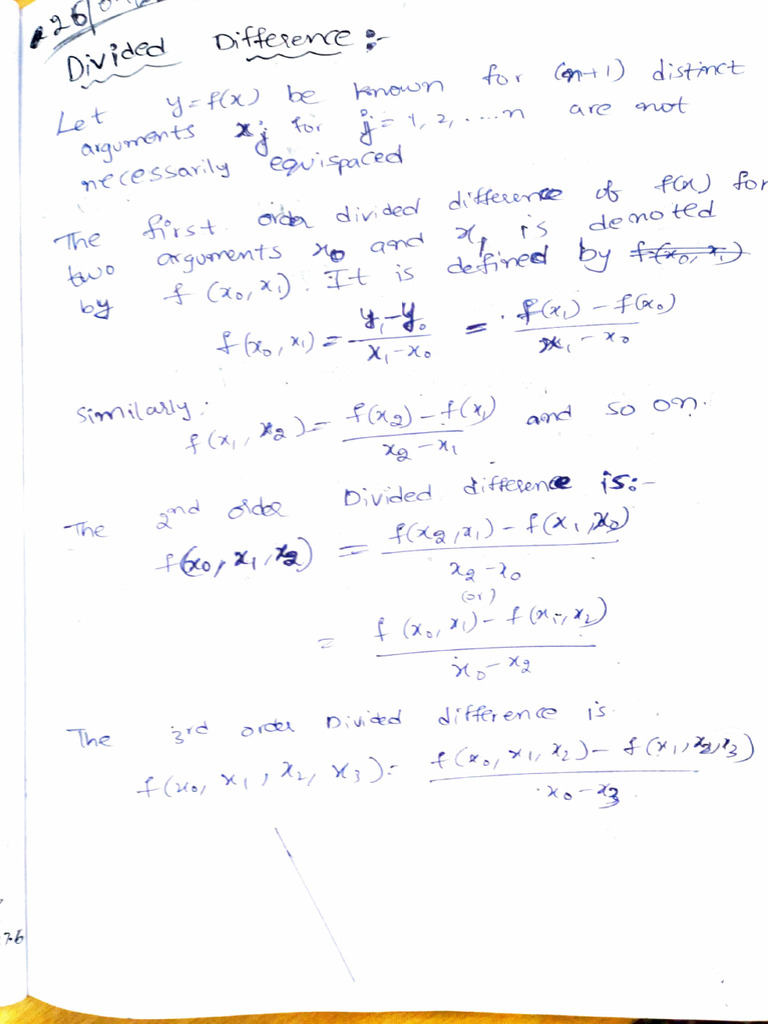 26/
Divided Difference :-
Let y=f(x) be known for (n+1) distinct
arguments xj for j = 1, 2, ....n are not
necessarily equispaced
The first order divided difference of f(x) for
two arguments x₀ and x₁ is denoted
by f (x₀, x₁). It is defined by f(x₀, x₁)
f(x₀, x₁) = (y₁-y₀)/(x₁-x₀) = (f(x₁) - f(x₀))/(x₁ - x₀)
Similarly.
f(x₁, x₂) = (f(x₂) - f(x₁))/(x₂ - x₁) and so on.
The 2nd order Divided difference is:-
f(x₀, x₁, x₂) = (f(x₂, x₁) - f(x₁, x₀))/(x₂ - x₀)
(or)
= (f(x₀, x₁) - f(x₁, x₂))/(x₀ - x₂)
The 3rd order Divided difference is
f(x₀, x₁, x₂, x₃) = (f(x₀, x₁, x₂) - f(x₁, x₂, x₃))/(x₀ - x₃)